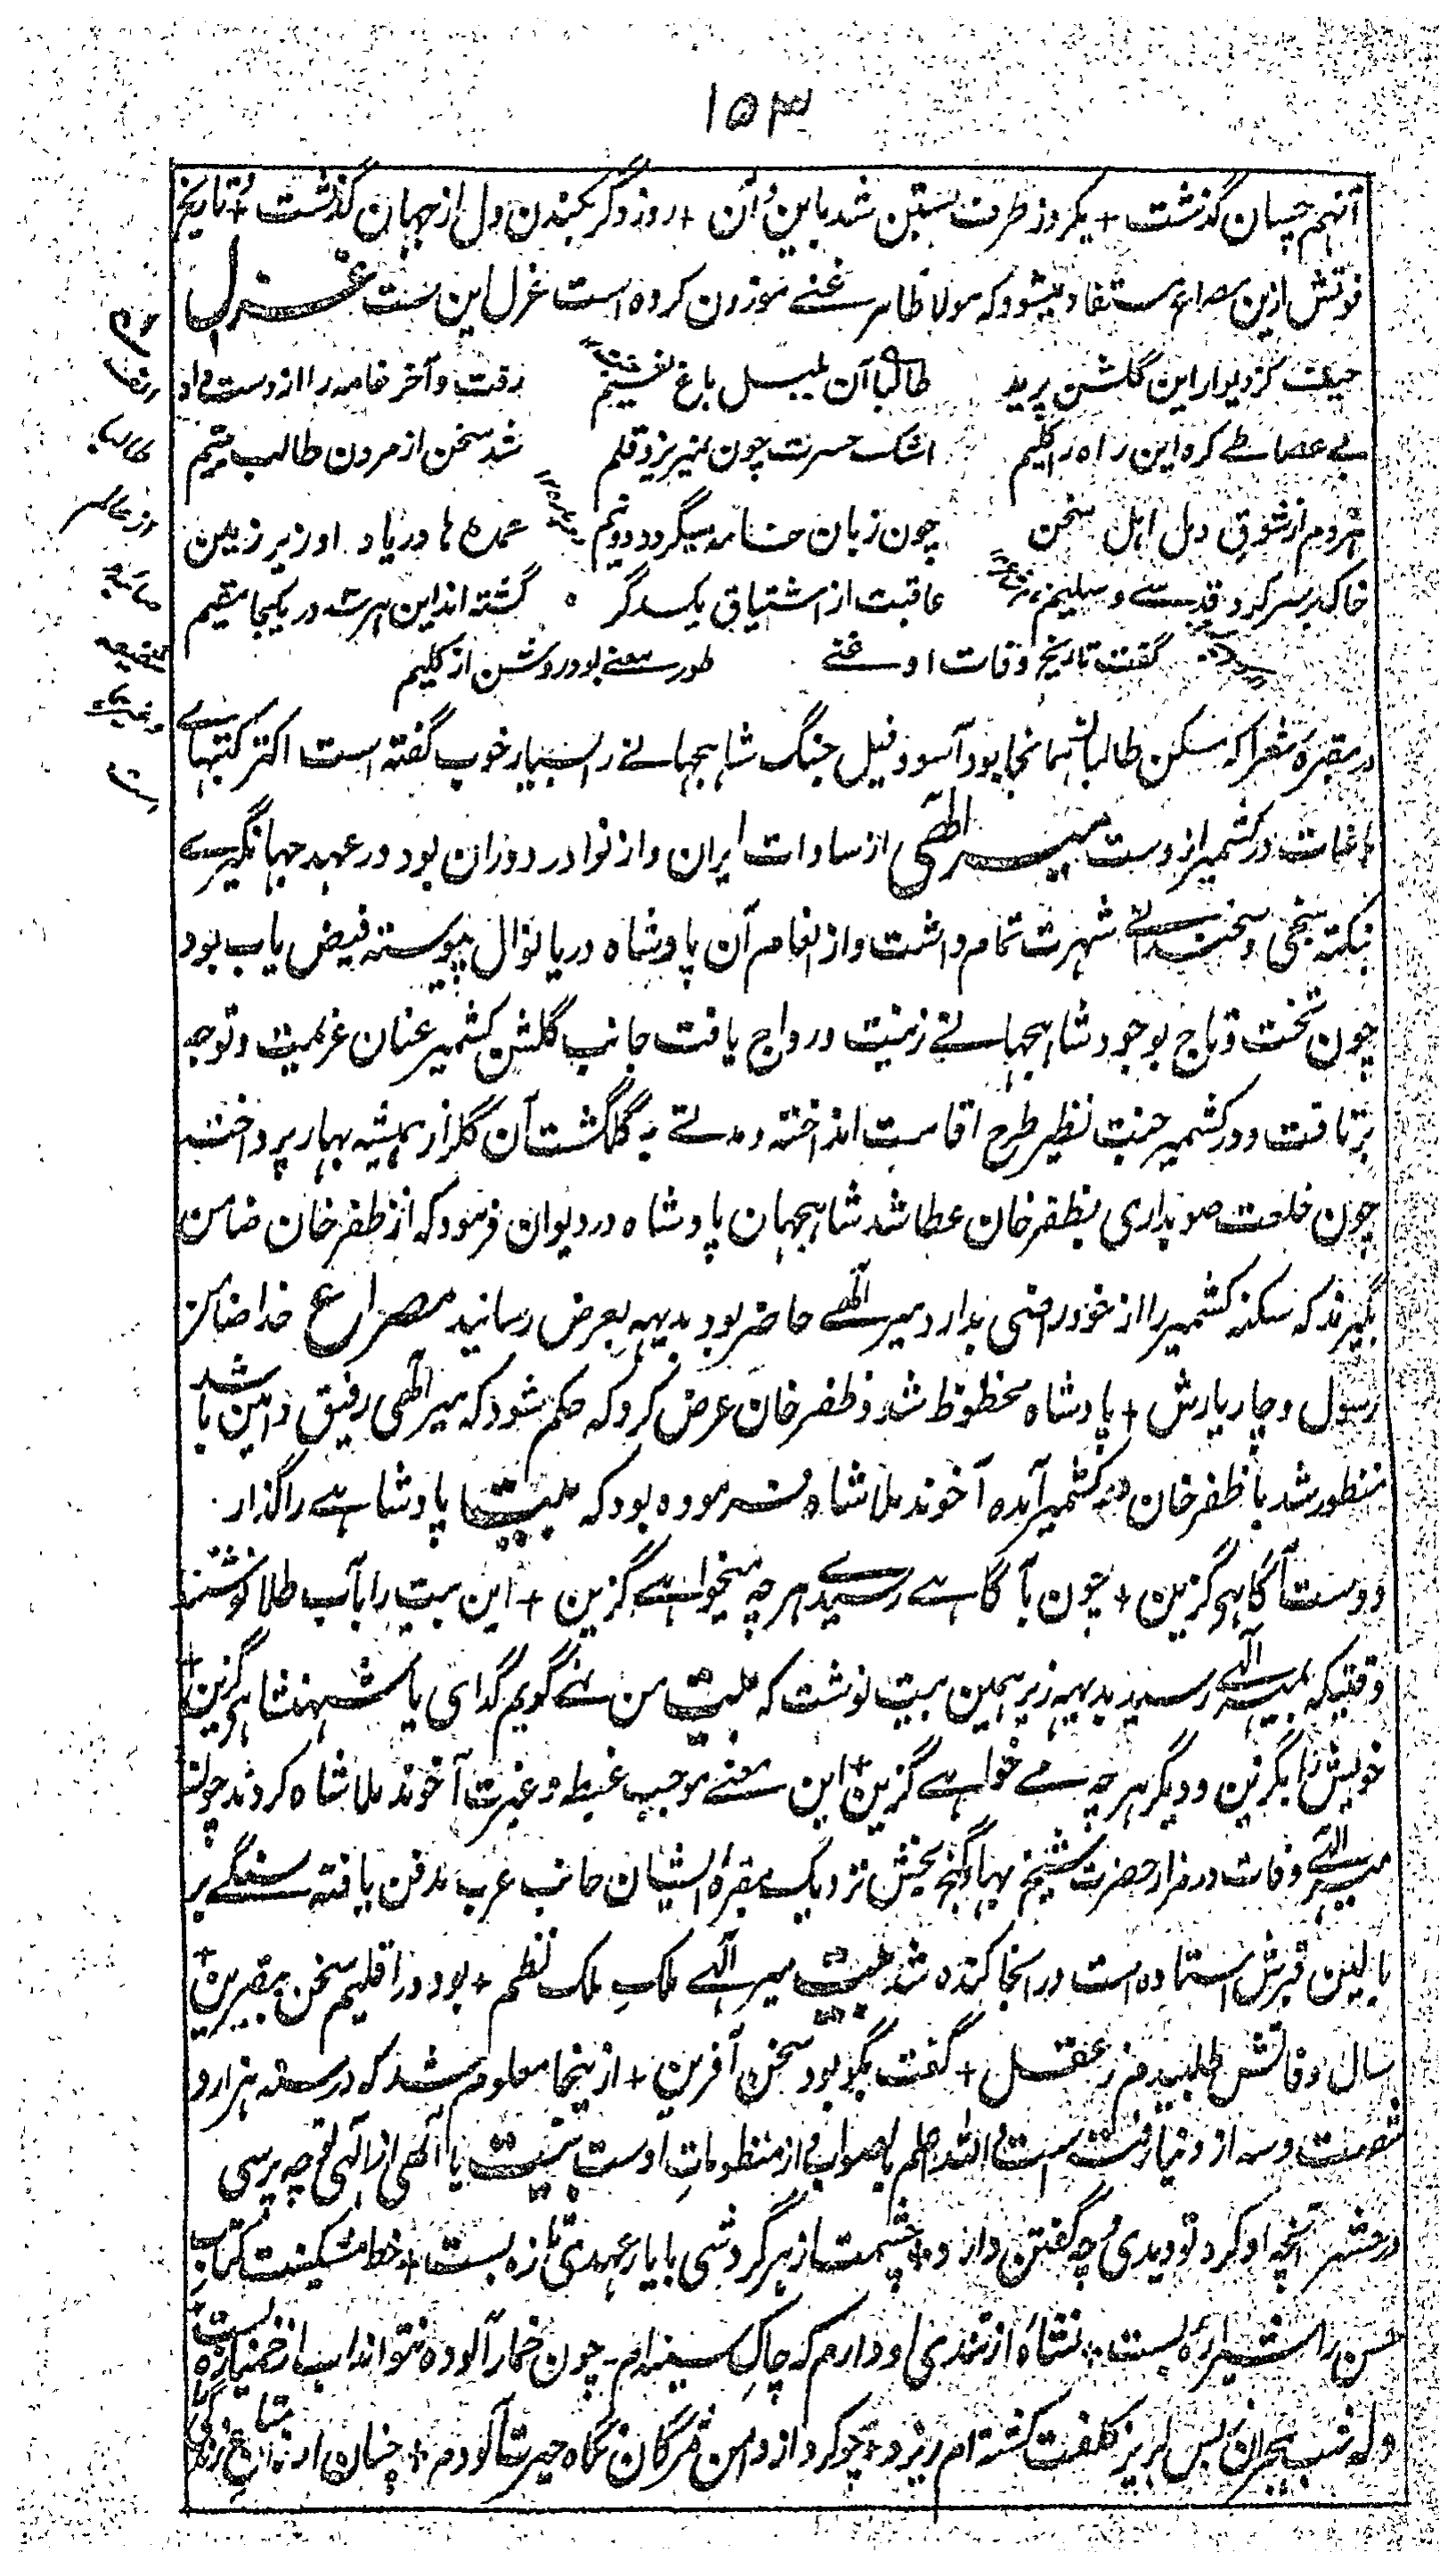 ۱۵۳
آنهم چسان گذشت + یکروز صرف بستن شد باین و آن + روز دگر بکندن دل از جهان گذشت + تاریخ
فوتش ازین مصراع مستفاد میشود که مولانا طاهر غنے موزون کرده است غزل این ست غزل
حیف کز دیوار این گلشن پرید طالبا آن بلبل باغ نعیم رفت و آخر خامه را از دست داد
بے عصا طے کرد این راه را کلیم اشک حسرت چون نمیریزد قلم شد سخن از مردن طالب یتیم
هر دم از شوق دل اهل سخن چون زبان خامه میگردد دو نیم عمرها در یاد او زیر زمین
خاک بر سر کرد قدسے و سلیم عاقبت از اشتیاق یکدگر گشته اند این هر سه در یکجا مقیم
گفت تاریخ وفات او غنے طور معنے بود روشن از کلیم
در مقبرۀ شعرا که مسکن طالبا همانجا بود آسود فیل جنگ شاهجهانے را بسیار خوب گفته است اکثر کتبهاے
باغات در کشمیر از وست میر الٰهی از سادات ایران و از نوادر دوران بود در عهد جهانگیرے
نکته سنجی و سخندانے شهرت تمام داشت و از انعام آن پادشاه دریا نوال پیوسته فیض یاب بود
چون تخت و تاج بوجود شاهجهانے زینت و رواج یافت جانب گلشن کشمیر عنان عزیمت و توجه
برتافت و در کشمیر جنت نظیر طرح اقامت انداخته و مدتے به گلگشت آن گلزار همیشه بهار پرداخت
چون خلعت صوبداری بظفر خان عطا شد شاهجهان پادشاه در دیوان فرمود که از ظفر خان ضامن
بگیرند که سکنه کشمیر را از خود راضی بدارد میر الٰهے حاضر بود بدیهه بعرض رسانید مصراع خدا ضامن
رسول و چار یارش + پادشاه محظوظ شد و ظفر خان عرض کرد که حکم شود که میر الٰهی رفیق و امین باشد
منظور شد با ظفر خان در کشمیر آمده آخوند ملا شاه فرموده بود که بیت پادشاهے را گذار
و دوست آگاهی گزین + چون بآگاهے رسیدے هر چه میخواهے گزین + این بیت را بآب طلا نوشتند
وقتیکه میر الٰهے رسید بدیهه زیر همین بیت نوشت که بیت من نمے گویم گدای یا شهنشاهی گزین +
خویش را بگزین و دیگر هر چه مے خواهے گزین + این معنے موجب غبطه و غیرت آخوند ملا شاه کردند چون
میر الٰهے وفات در مزار حضرت شیخ بهاء گنج بخش نزدیک مقبرۀ ایشان جانب غرب مدفن یافته سنگے بر
بالین قبرش استاده است در انجا کنده شد بیت میر الٰهے ملک ملک نظم + بود در اقلیم سخن بیقرین +
سال وفاتش طلبیدم ز عقل + گفت بگو بود سخن آفرین + از ینجا معلوم شد که در سنه هزار و
شصت و سه از دنیا رفته است و الله اعلم بالصواب از منظومات اوست بیت یا الٰهی از الٰهی چه پرسی
در حشر آنچه او کرد تو دیدی چه گفتن دارد + چشمت از هر گردشی با یار عهدی تازه بست + خط مشکینت کتاب
حسن را شیرازه بست + نشأه از تندی او دارم که چاک سینه ام - چون خمار آلوده نتواند لب از خمیازه بست
وله شب هجران بس لبریز کلفت گشته ام ریزد + چو گرد از دامن مژگان نگاه حیرت آلودم + چسان از داغ